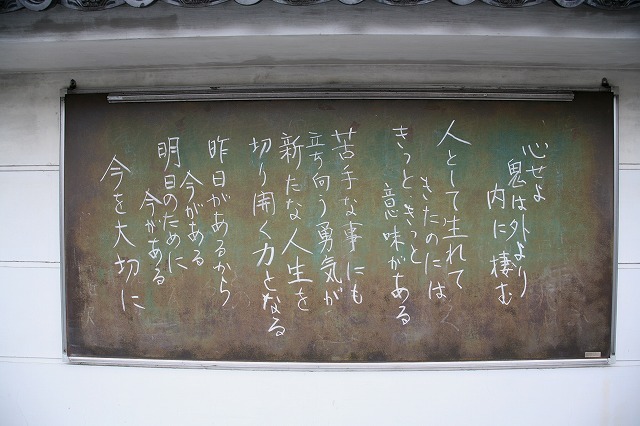 心せよ
鬼は外より
内に棲む
人として生れて
きたのには
きっときっと
意味がある
苦手な事にも
立ち向う勇気が
新たな人生を
切り開く力となる
昨日があるから
今がある
明日のために
今がある
今を大切に